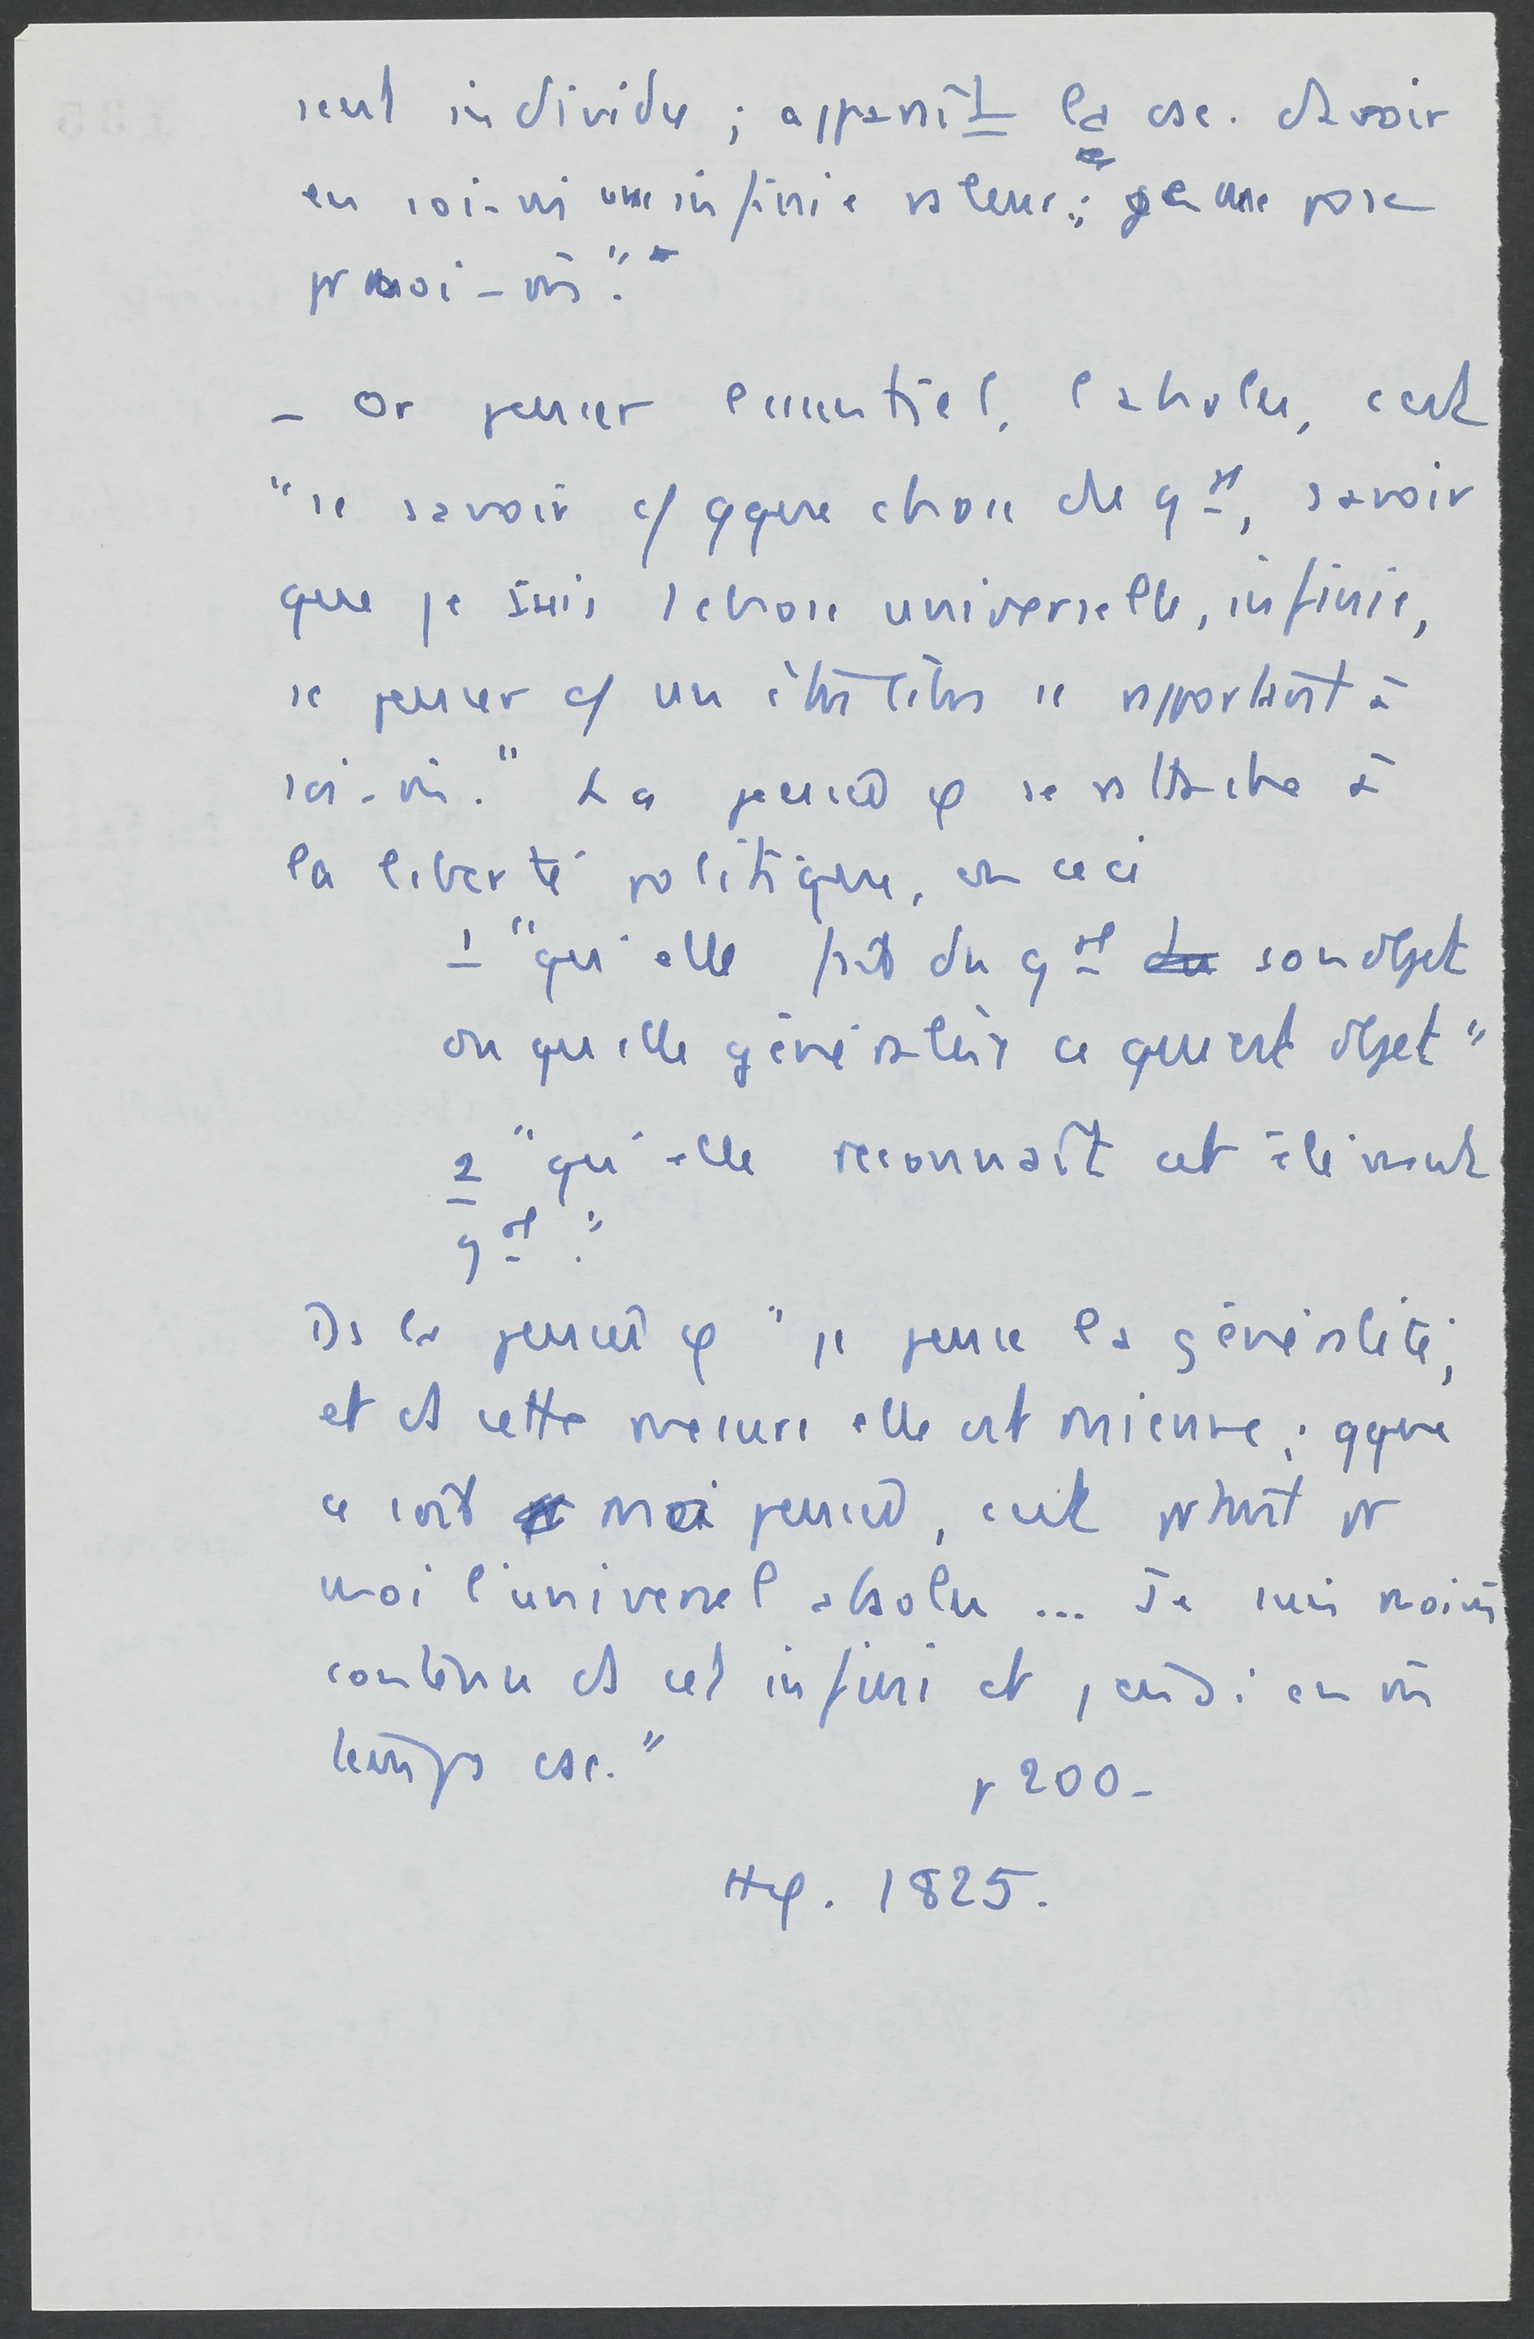 seul individu ; apparaît la csc. d'avoir
en soi-m̂ une infinie valeur ; je me pose
pr moi-m̂."
- Or penser l'essentiel, l'absolu, c'est
"se savoir c/ qque chose de gal, savoir
que je suis 1 chose universelle, infinie,
se penser c/ un être libre se rapportant à
soi-m̂." La pensée φ se rattache à
la liberté politique, en ceci
1 "qu'elle fait du gal du son objet
ou qu'elle généralise ce qui est objet"
2 "qu'elle reconnaît cet élément
gal."
Ds la pensée φ "je pense la généralité ;
et ds cette mesure elle est mienne ; qque
ce soit moi pensée, c'est prtant pr
moi l'universel absolu ... Je suis moi m̂
contenu ds cet infini et j'en ai en m̂
temps csc."
p 200-
Hφ. 1825.